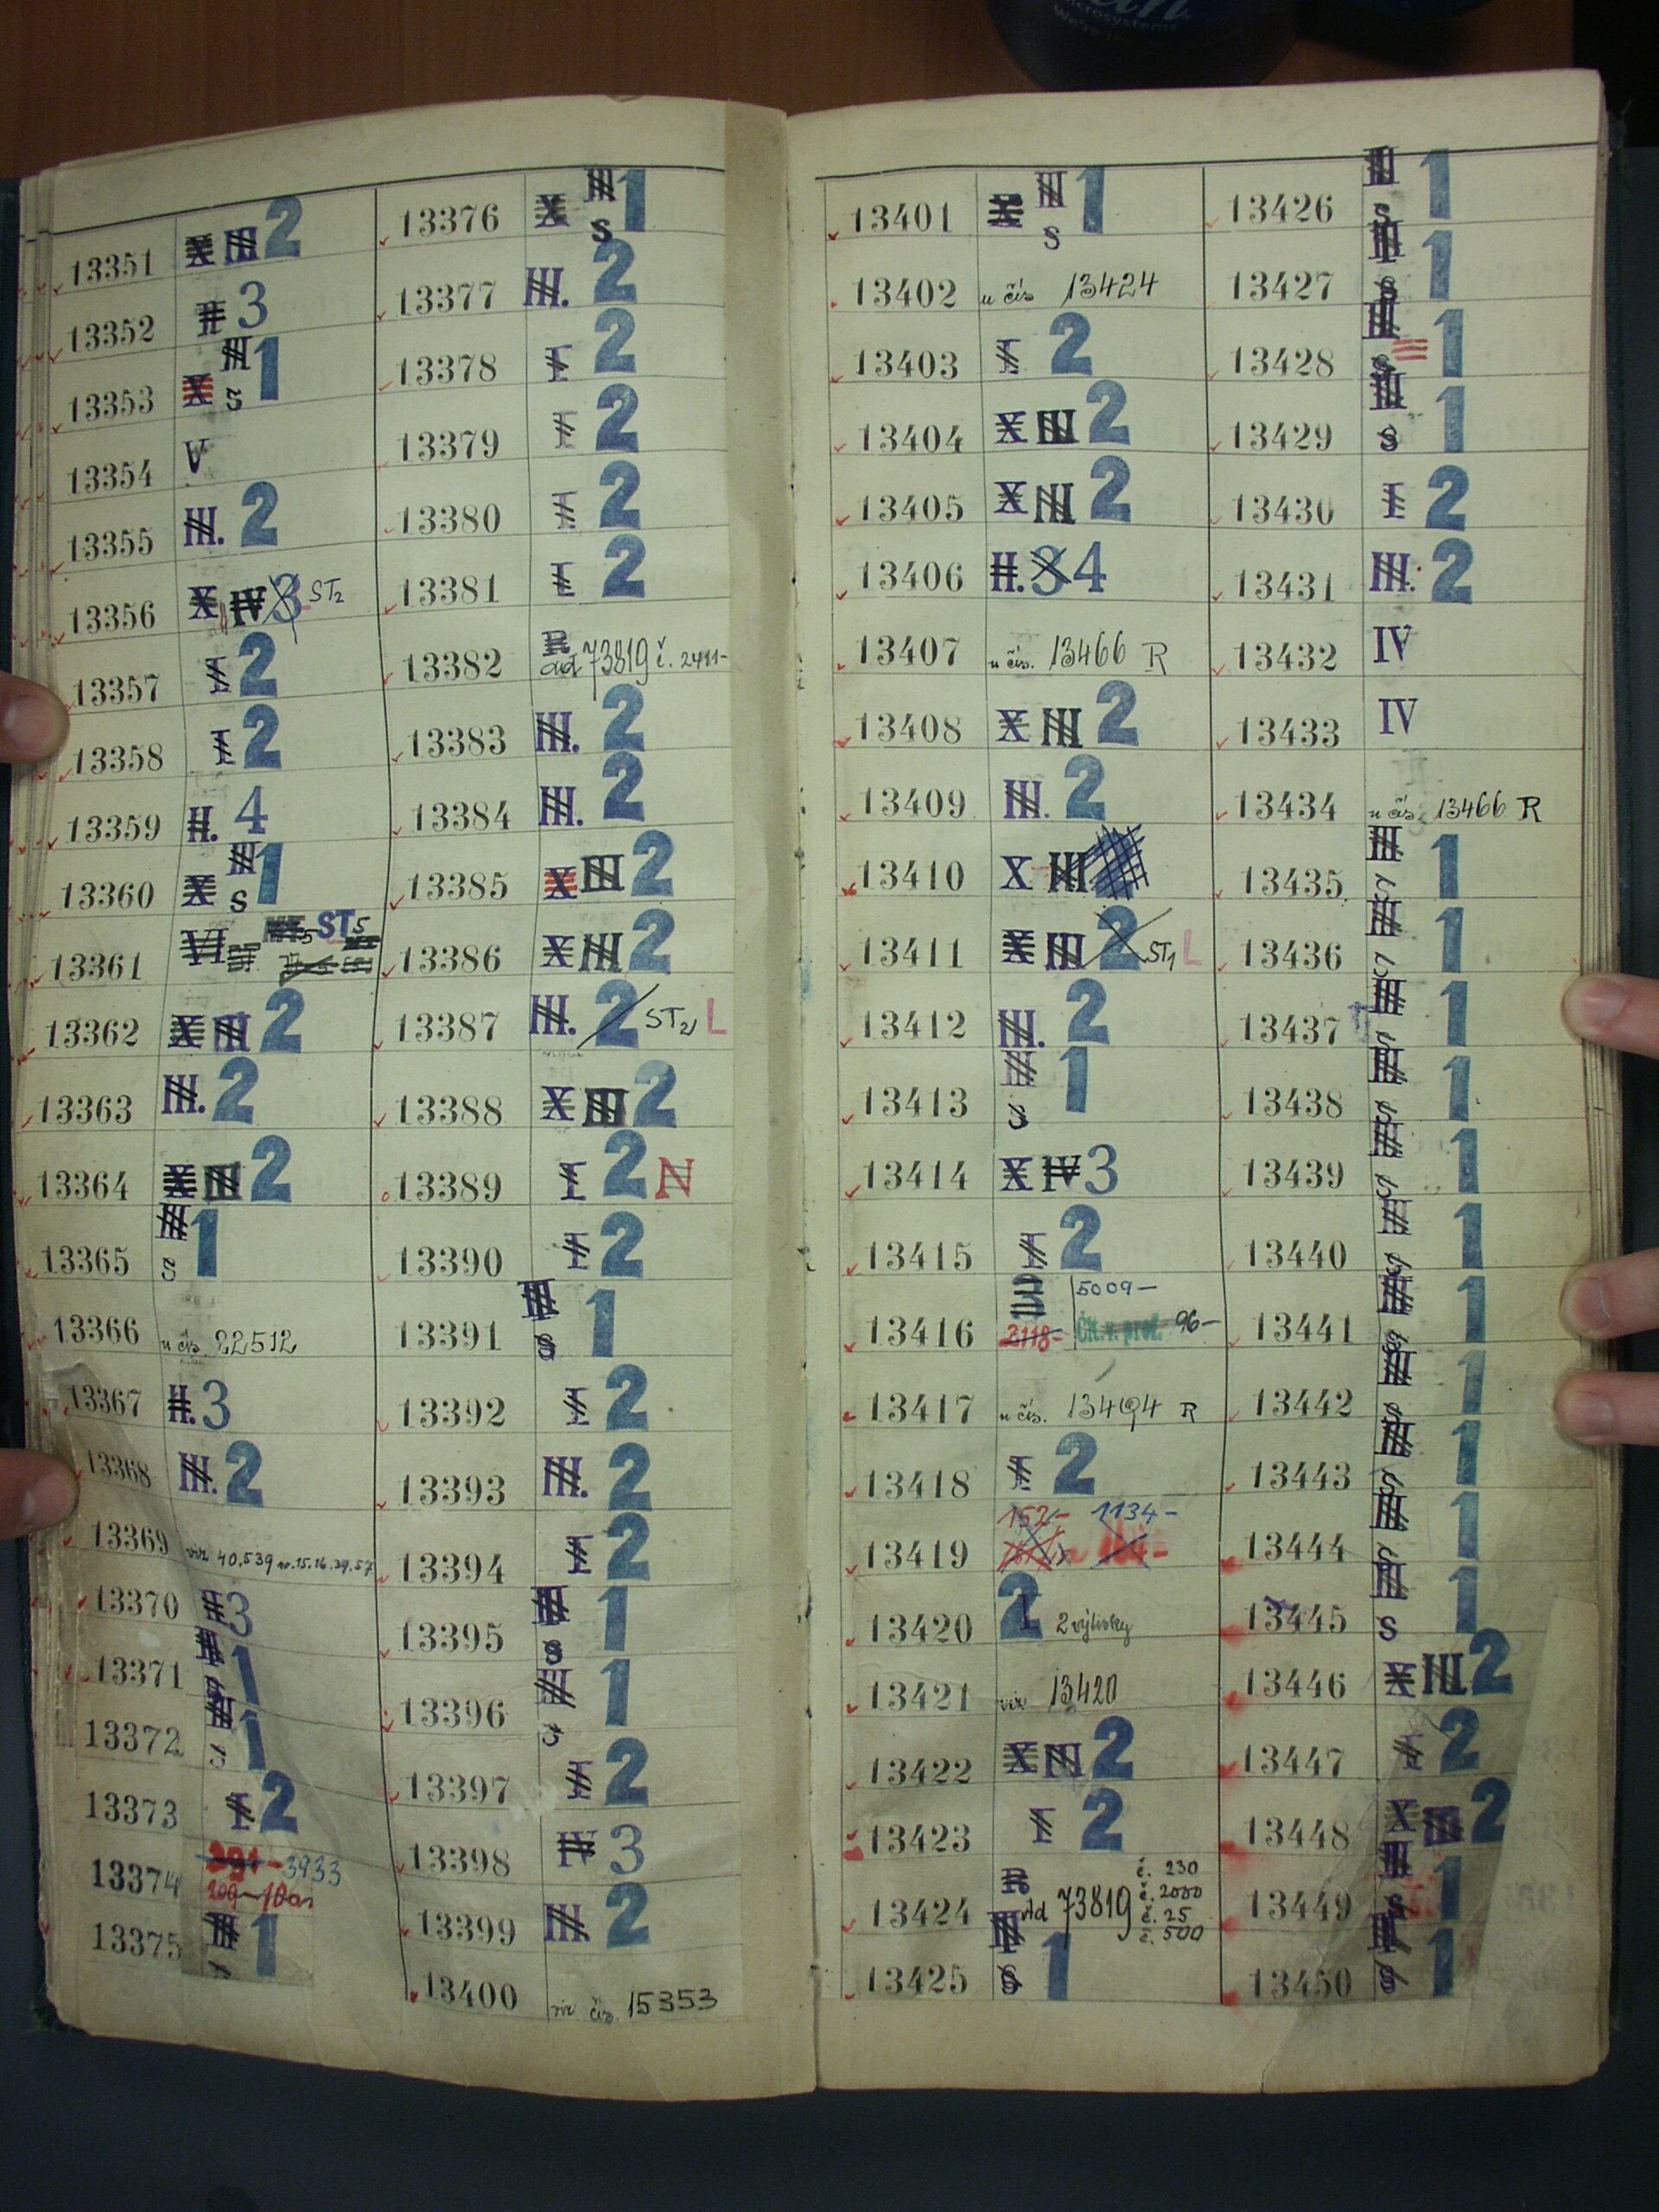 Microsystems
13351 X III 2
13352 II 3
13353 X III s 1
13354 V
13355 III. 2
13356 X IV 3 ST2
13357 I 2
13358 I 2
13359 II. 4
13360 X III s 1
13361 VI ST5
13362 X III 2
13363 III. 2
13364 X III 2
13365 III s 1
13366 u čís. 22512
13367 II. 3
13368 III. 2
13369 viz 40,539 v. 15.16.39.57
13370 II 3
13371 III s 1
13372 III s 1
13373 I 2
13374 3933
13375 III 1
13376 X III s 1
13377 III. 2
13378 I 2
13379 I 2
13380 I 2
13381 I 2
13382 R
ad 73819 č. 2411-
13383 III. 2
13384 III. 2
13385 X III 2
13386 X III 2
13387 III. 2 ST2/ L
13388 X III 2
13389 I 2 N
13390 I 2
13391 III s 1
13392 I 2
13393 III. 2
13394 I 2
13395 III s 1
13396 III s 1
13397 I 2
13398 IV 3
13399 III. 2
13400 viz čís. 15353
13401 X III s 1
13402 u čís 13424
13403 I 2
13404 X III 2
13405 X III 2
13406 II. 3 4
13407 u čís. 13466 R
13408 X III 2
13409 III. 2
13410 X III
13411 X III 2 ST1 L
13412 III. 2
13413 III s 1
13414 X IV 3
13415 I 2
13416 5009-
2118- Čít. v. prof. 96-
13417 u čís. 13494 R
13418 I 2
13419 152- 1134-
13420 2 2 výtisky
13421 viz 13420
13422 X III 2
13423 I 2
13424 R
Ad 73819 č. 230
č. 2000
č. 25
č. 500
13425 III s 1
13426 III s 1
13427 III s 1
13428 III s 1
13429 III s 1
13430 I 2
13431 III. 2
13432 IV
13433 IV
13434 u čís. 13466 R
13435 III s 1
13436 III s 1
13437 III s 1
13438 III s 1
13439 III s 1
13440 III s 1
13441 III s 1
13442 III s 1
13443 III s 1
13444 III s 1
13445 III s 1
13446 X III 2
13447 I 2
13448 X III 2
13449 III s 1
13450 III s 1